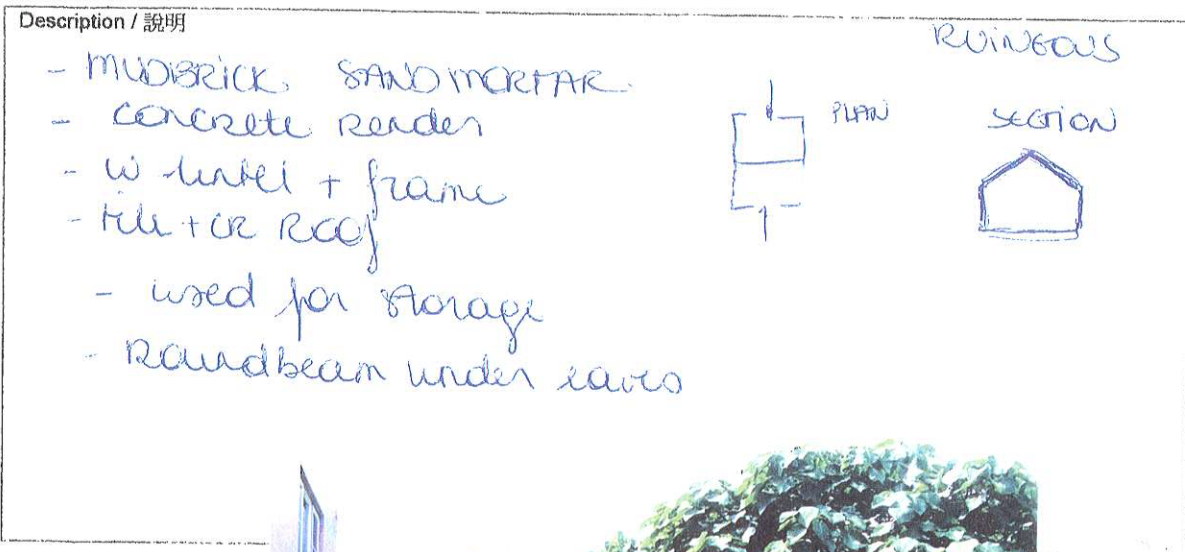 Description / 説明
RUINEOUS
- MUDBRICK, SAND MORTAR.
- concrete render
- W lintel + frame
- tile + CR Roof
- used for storage
- Roundbeam under eaves
PLAN
SECTION